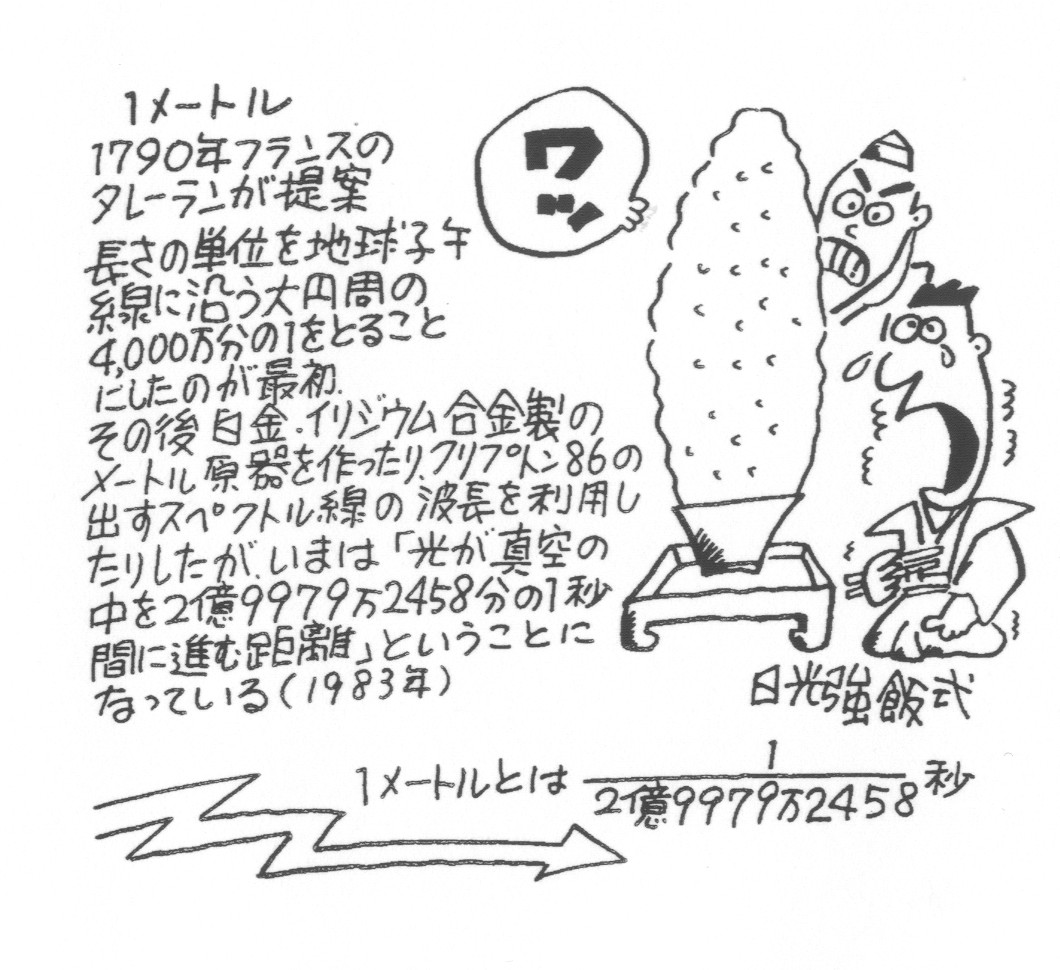 1メートル
1790年フランスの
タレーランが提案
長さの単位を地球子午
線に沿う大円周の
4,000万分の1をとること
にしたのが最初.
その後白金.イリジウム合金製の
メートル原器を作ったり、クリプトン86の
出すスペクトル線の波長を利用し
たりしたが、いまは「光が真空の
中を2億9979万2458分の1秒
間に進む距離」ということに
なっている(1983年)
ワッ
日光強飯式
1メートルとは 1
2億9979万2458 秒